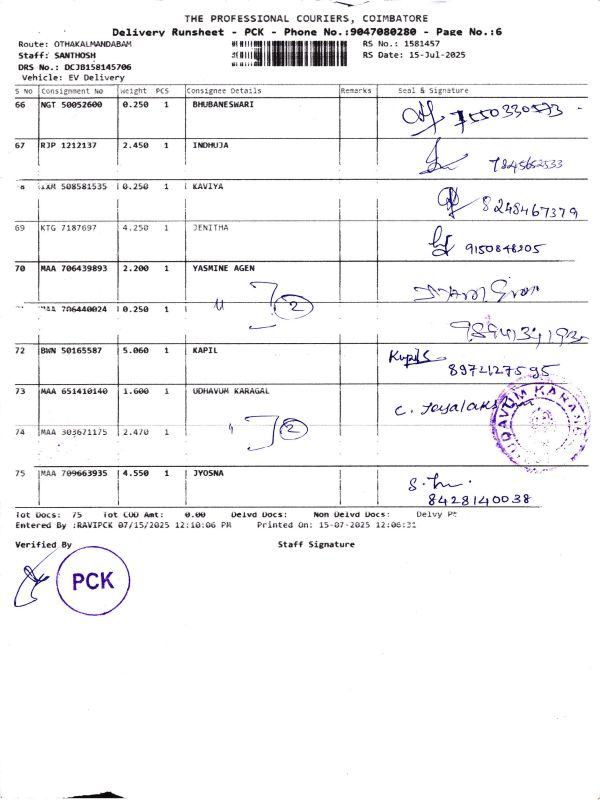 THE PROFESSIONAL COURIERS, COIMBATORE
Delivery Runsheet - PCK - Phone No.:9047080280 - Page No.:6
Route: OTHAKALMANDABAM RS No.: 1581457
Staff: SANTHOSH RS Date: 15-Jul-2025
DRS No.: DCJB158145706
Vehicle: EV Delivery
S No Consignment No Weight PCS Consignee Details Remarks Seal & Signature
66 NGT 50052600 0.250 1 BHUBANESWARI 7550330573
67 RJP 1212137 2.450 1 INDHUJA 7845652533
508581535 0.250 1 KAVIYA 8248467379
69 KTG 7187697 4.250 1 JENITHA 9150848205
70 MAA 706439893 2.200 1 YASMINE AGEN
MAA 706440024 0.250 1 2
72 BWN 50165587 5.060 1 KAPIL Kapil S 8972127595
73 MAA 651410140 1.600 1 UDHAVUM KARAGAL C. Jayalaks
74 MAA 303671175 2.470 1 2
UDAVUM KARANGAL
75 MAA 709663935 4.550 1 JYOSNA 8428140038
Tot Docs: 75 Tot COD Amt: 0.00 Delvd Docs: Non Delvd Docs: Delvy Pt
Entered By :RAVIPCK 07/15/2025 12:10:06 PM Printed On: 15-07-2025 12:06:31
Verified By Staff Signature
PCK